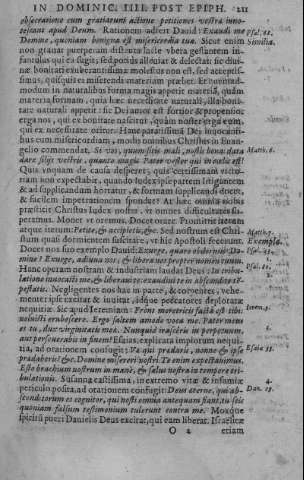 IN DOMINIC. IIII. POST EPIPH. 211
obsecratione cum gratiarum actione petitiones vestræ inno-
tescant apud Deum. Rationem adfert Dauid: Exaudi me Psal. 
Domine, quoniam benigna est misericordia tua. Sicut enim Similia.
non grauat puerperam distenta lacte vbera gestantem in-
fantulus qui ea sugit, sed potius
mus, quia
modum in naturalibus appetit materia formam, quia
materia formam, quia hæc necessitate naturali, illa bonita-
te naturali appetit: sic Dei amor est fortior & propensior
erga nos, qui ex bonitate nascitur, quam noster erga eum,
qui ex necessitate oritur. Hanc paratissimā Dei
bus cum misericordiam, modis omnibus Christus in Euan-
gelio commendat. Si vos, quum sitis mali, nostis bona data Matth. 6.
dare filijs vestris, quanto magis Pater vester qui in cælis est?
Quis vnquam de causa desperet, quis certissimam victo-
riam non expectabit, quando Iudex ipse partem
& ad supplicandum hortatur, & formam supplicandi docet,
& facilem impetrationem spondet? At hæc omnia nobis
præstitit Christus Iudex noster, vt omnes difficultates su-
peremus. Monet vt oremus. Docet orare. Promittit iterum
atque iterum: Petite, & accipietis, &c. Sed nostrum est Chri- Matth. 7.
stum quasi dormientem suscitare, vt hic Apostoli fecerunt. Exemplo.
Docet nos suo exemplo Dauid: Exurge, quare obdormis Do- Psal. 
mine? Exurge, adiuua nos, & libera nos propter nomen tuum.
Hanc operam nostram & industriam laudat Deus: In tribu- Psal. 
latione inuocasti me, & liberaui te: exaudiui te in abscondito
pestatis. Negligentes nos hac in parte, & torpentes, vehe-
menter ipse excitat & inuitat, idque peccatores deploratæ
nequitiæ. Sic apud Ieremiam: Frons meretricis facta est tibi: Ierem. 
noluisti erubescere. Ergo saltem amodo voca me, Pater meus
es tu, dux virginitatis meæ. Nunquid irasceris in perpetuum,
aut perseuerabis in finem? Esaias, explicata improborum nequi-
tia, ad orationem confugit: Væ qui prædaris, nonne & ipse Esaiæ 33.
prædaberis? &c. Domine miserere nostri: Te enim expectauimus.
Esto brachium nostrum in mane, & salus nostra in tempore tri-
bulationis. Susanna castissima, in extremo vitæ & infamiæ
periculo posita, ad orationem confugit: Deus æterne, qui ab- Dan. 13.
sconditorum es cognitor, qui nosti omnia antequam fiant, tu scis
quoniam falsum testimonium tulerunt contra me. Moxque
spiritū pueri Danielis Deus excitat, qui eam liberat. Israelitæ
O 2 etiam